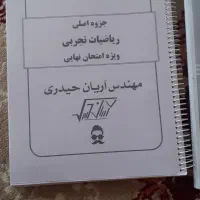 جزوه اصلی
ریاضیات تجربی
ویژه امتحان نهایی
مهندس آریان حیدری